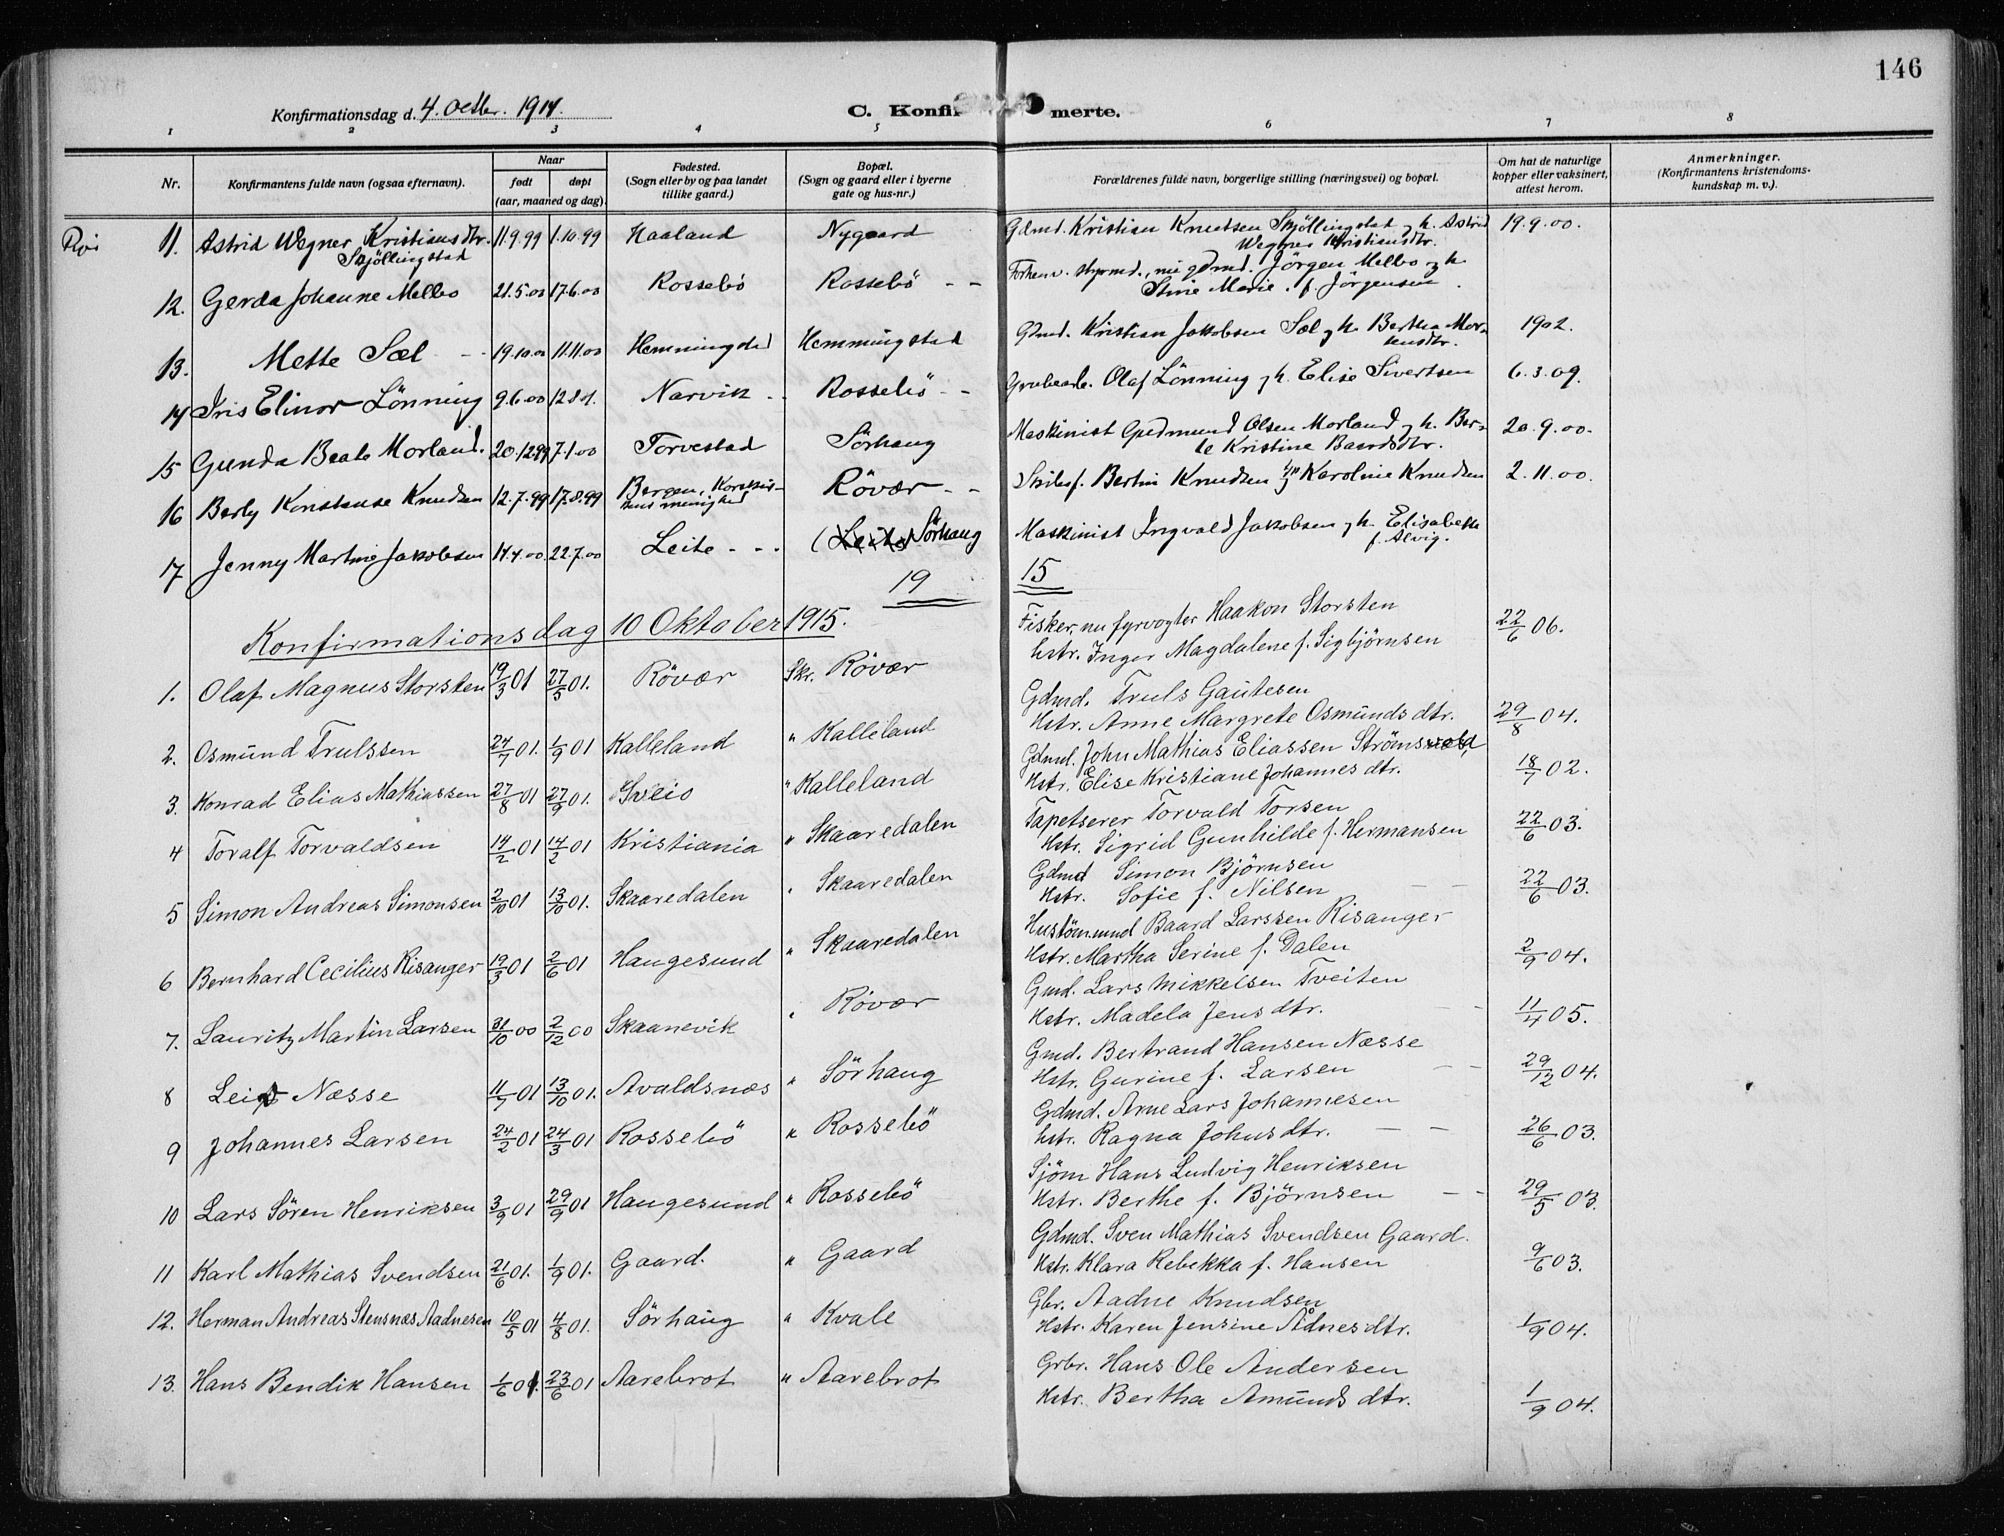 146
Konfirmationsdag d. 4. Octbr. 1914.
C. Konfirmerte.
1 2 3 4 5 6 7 8
Nr. Konfirmantens fulde navn (ogsaa efternavn). Naar født døpt (aar, maaned og dag). Fødested. (Sogn eller by og paa landet tillike gaard.) Bopæl. (Sogn og gaard eller i byerne gate og hus-nr.) Forældrenes fulde navn, borgerlige stilling (næringsvei) og bopæl. Om hat de naturlige kopper eller vaksinert, attest herom. Anmerkninger. (Konfirmantens kristendoms-kundskap m. v.).
11. Astrid Wegner Kristiansdtr. 11.9.99 1.10.99 Haaland Nygaard Gdmd. Kristian Knutsen Skjöllingstad og h. Astrid 19.9.00.
Skjöllingstad Wegner Kristiansdtr.
12. Gerda Johanne Melbo 21.5.00 17.6.00 Rossebö Rossebö - - Forhenv. styrmd., nu gdmd. Jörgen Melbo og h.
Stine Marie f. Jörgensen.
13. Mette Sæl - - 19.10.00 11.11.00 Hemmingstad Hemmingstad Gdmd. Kristian Jakobsen Sæl og h. Bertha Mor- 1902.
tensdtr.
14 Iris Elinor Lönning 9.6.00 Narvik - - Rossebö - - Grubearb. Olaf Lönning og h. Elise Sivertsen 6.3.09.
15 Gunda Beate Morland. 20.12.99 7.1.00 Torvestad Sörhaug Maskinist Gudmund Olsen Morland og h. Ber- 20.9.00.
te Kristine Baardsdtr.
16 Berly Konstanse Knudsen 12.7.99 17.8.99 Bergen, Korskir- Rövær - - Skibsf. Bertin Knudsen og Karoline Knudsen 2.11.00.
kens menighed
17 Jenny Martine Jakobsen 14.4.00 22.7.00 Leite - - - (Leite) Sörhaug Maskinist Ingvald Jakobsen og h. Elisabeth
f. Alvig.
19 15
Konfirmationsdag 10 Oktober 1915.
1. Olaf Magnus Storsten 19/3 01 27/5 01. Rövær Skr. Rövær Fisker, nu fyrvogter Haakon Storsten 22/6 06.
hstr. Inger Magdalene f. Sigbjörnsen
2. Osmund Trulssen 24/7 01. 1/9 01 Kalleland " Kalleland Gdmd. Truls Gautesen
Hstr. Anne Margrete Osmunds dtr. 29/8 04.
3. Konrad Elias Mathiassen 27/8 01 27/9 01. Sveio " Kalleland Gdmd. John Mathias Eliassen Strömsvold
Hstr. Elise Kristiane Johannes dtr. 18/7 02.
4 Toralf Torvaldsen 14/2 01 14/2 01 Kristiania " Skaaredalen Tapetserer Torvald Torsen
Hstr. Sigrid Gunhilde f. Hermansen 22/6 03.
5 Simon Andreas Simonsen 2/10 01 13/10 01. Skaaredalen " Skaaredalen Gdmd Simon Björnsen
Hstr. Sofie f. Nilsen - - 22/6 03.
6 Bernhard Cecilius Risanger 19/3 01 2/6 01 Haugesund " Skaaredalen Hustömmand Baard Larssen Risanger
Hstr. Martha Serine f. Dalen 2/9 04.
7. Lauritz Martin Larsen 31/10 00 2/12 00 Skaanevik " Rövær Gmd. Lars Mikkelsen Tveiten
Hstr. Madela Jens dtr. - - 11/4 05.
8 Leif Næsse 11/7 01 13/10 01. Avaldsnæs " Sörhaug Gmd. Bertrand Hansen Næsse
Hstr. Gurine f. Larsen - - 29/12 04.
9 Johannes Larsen 24/2 01 24/3 01 Rossebö " Rossebö Gdmd. Arne Lars Johannesen
hstr. Ragna Johns dtr. - - 26/6 03.
10 Lars Sören Henriksen 3/9 01 29/9 01 Haugesund " Rossebö Sjöm Hans Ludvig Henriksen
Hstr. Berthe f. Björnsen - - 29/5 03.
11 Karl Mathias Svendsen 21/6 01. 1/9 01. Gaard. " Gaard Gdmd. Sven Mathias Svendsen Gaard.
Hstr. Klara Rebekka f. Hansen 9/6 03.
12. Herman Andreas Stensnæs Aadnesen 10/5 01 4/8 01. Sörhaug " Kvale Gbr. Aadne Knudsen
Hstr. Karen Jensine Ådnes dtr. 1/9 04.
13. Hans Bendik Hansen 1/6 01. 23/6 01 Aarebrot " Aarebrot Grbr. Hans Ole Andersen
Hstr. Bertha Amunds dtr. 1/9 04.